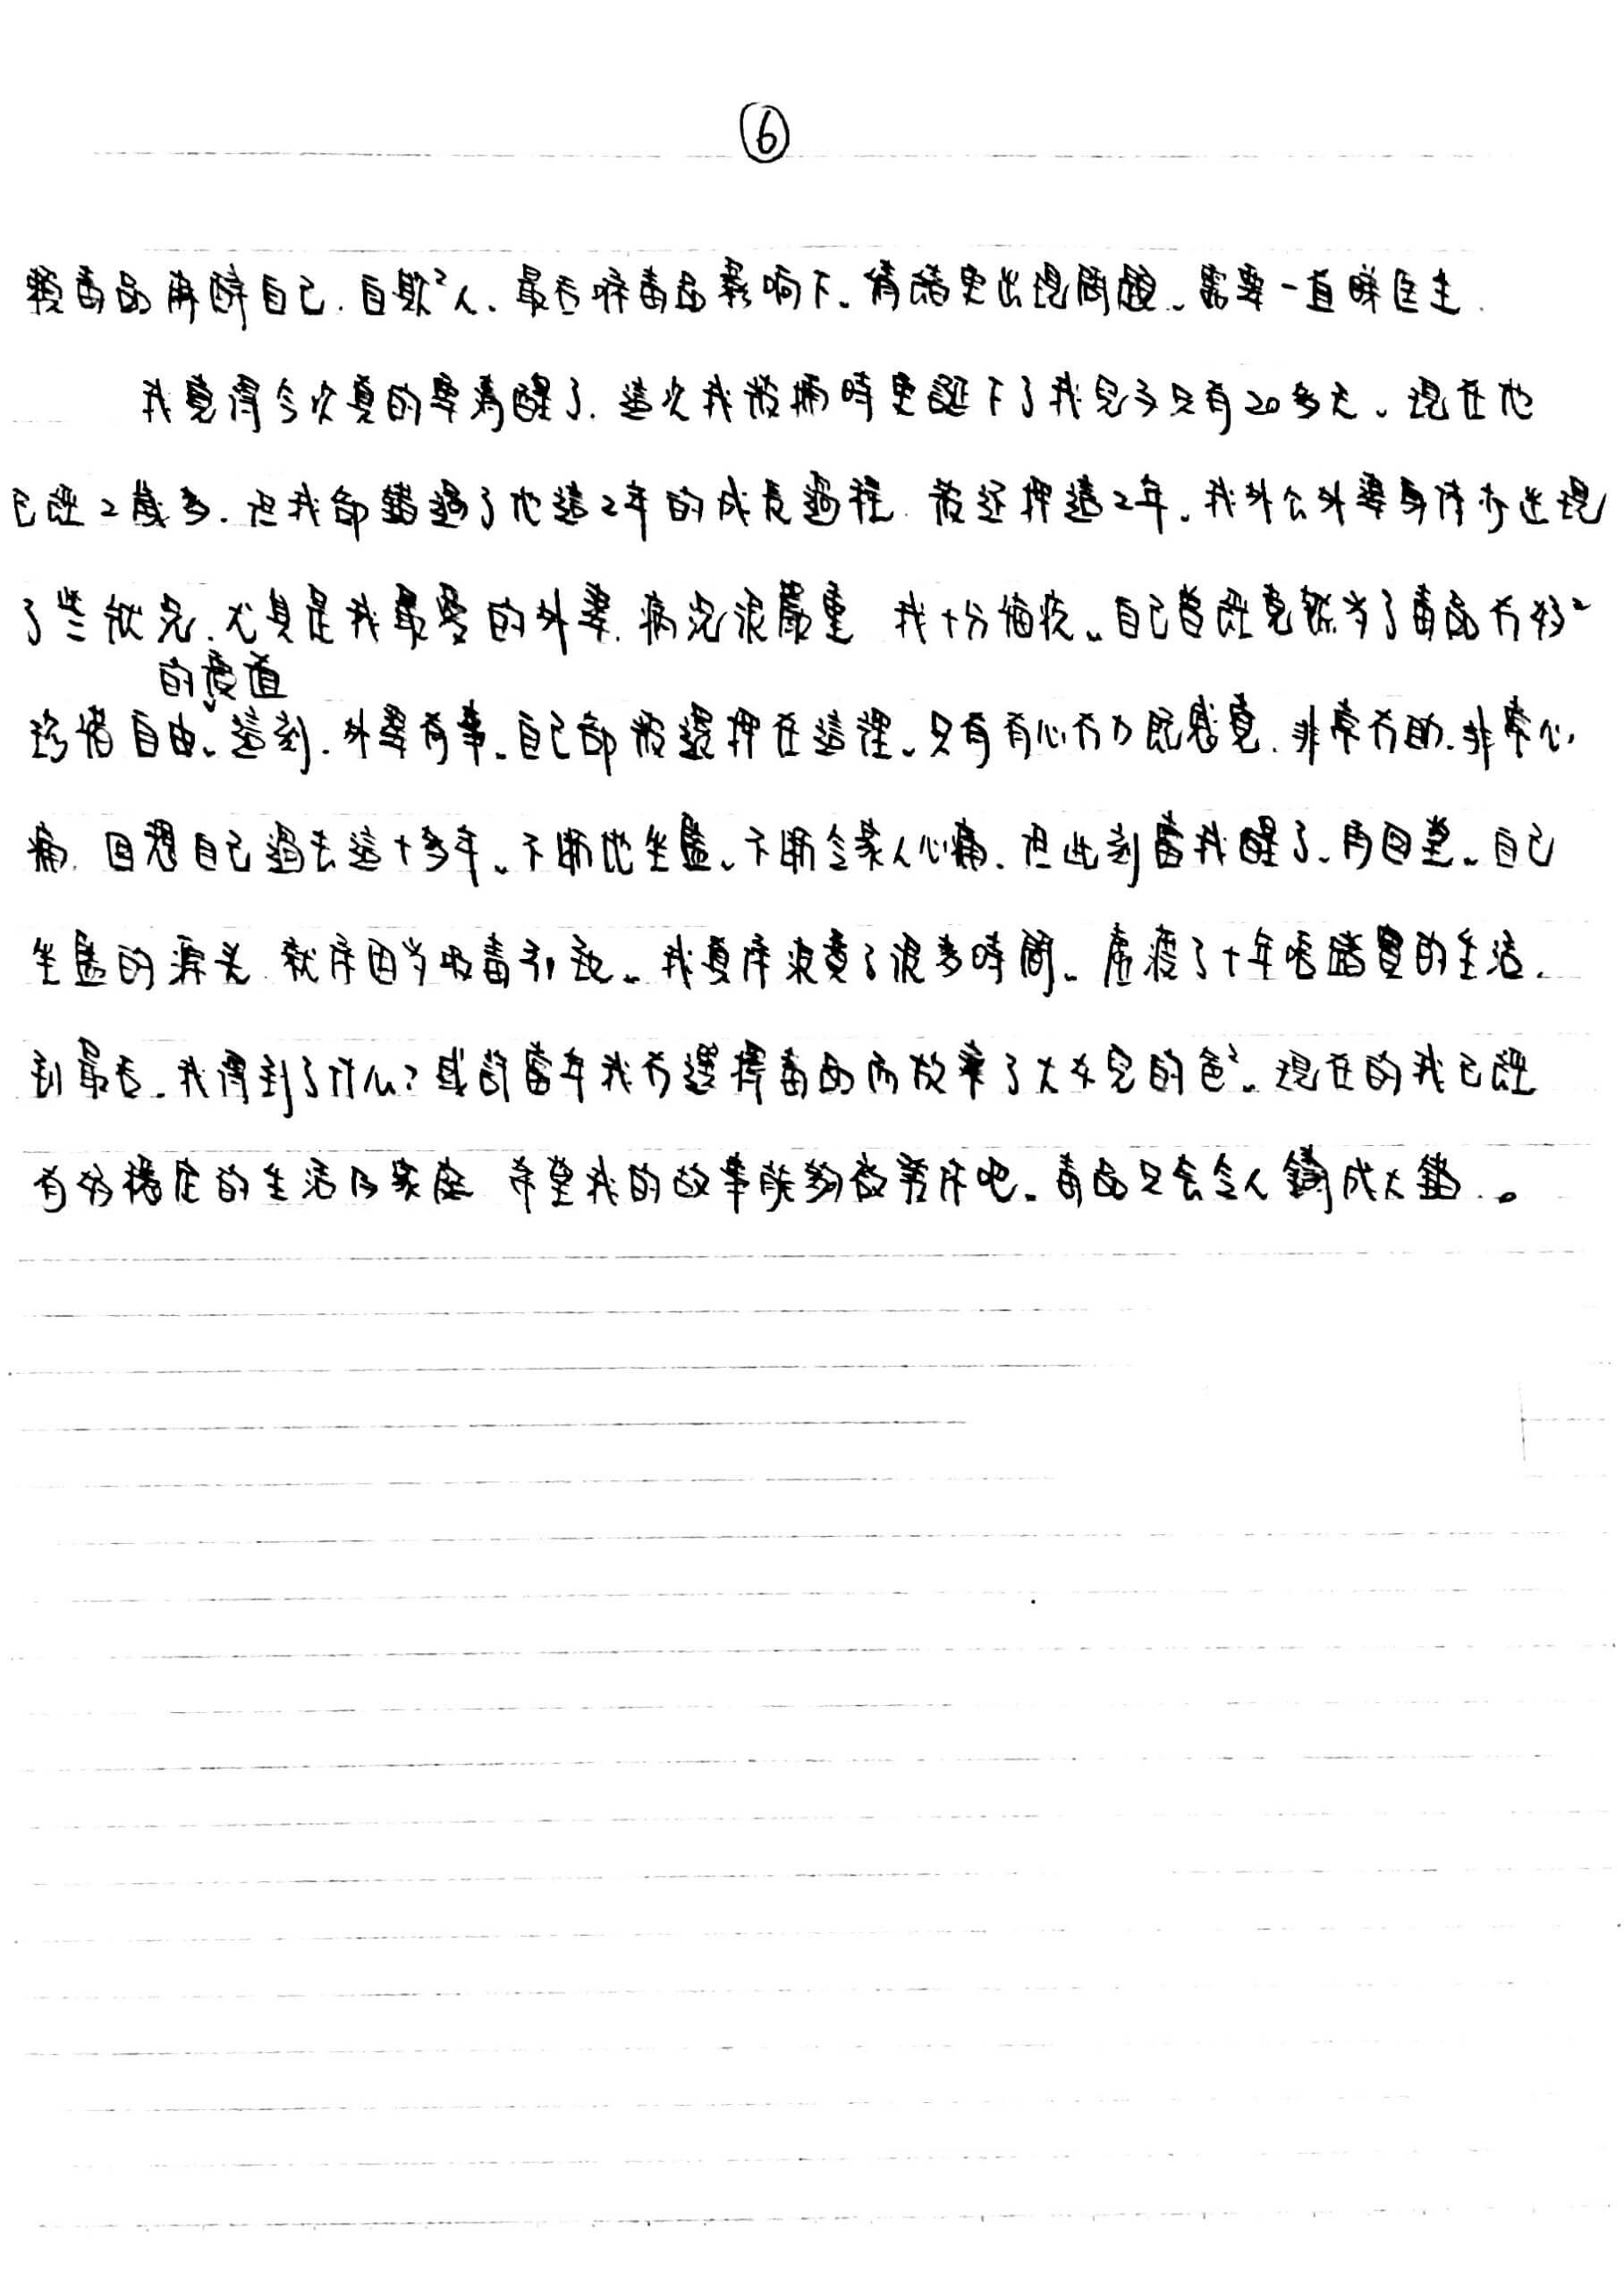 ⑥
賴毒品麻醉自己.自欺²人、最后喺毒品影响下、情緒更出現問題、需要一直睇医生.
我覺得今次真的要清醒了.這次我被捕時更誕下了我兒子只有20多天、現在他
已經2歲多.但我卻錯過了他這2年的成長過程.被还押這2年、我外公外婆身体亦出現
了些狀況、尤其是我最愛的外婆.病況很嚴重 我十分愧疚、自己曾經竟然为了毒品冇好²
珍惜自由的愛道、這刻.外婆有事、自己卻被還押在這裡、只有有心冇力既感覺.非常冇助.非常心
痛.回想自己過去這十多年、不断地坐監、不断令家人心痛.但此刻當我醒了、再回望、自己
坐監的源头.就係因为吸毒引致、我真係浪費了很多時間、虛渡了十年嘅踏實的生活.
到最后、我得到了什么?或許當年我冇選擇毒品而放棄了大女兒的爸²、現在的我已經
有好穩定的生活及家庭 希望我的故事能夠啟發你吧、毒品只会令人鑄成大錯..。